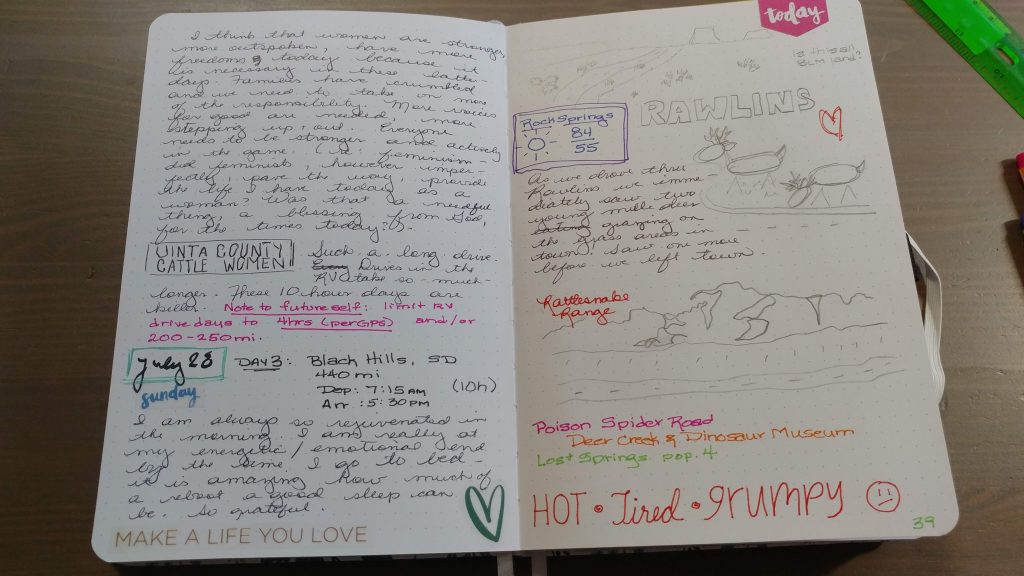 I think that women are stronger,
more outspoken, have more
freedoms today because it
is necessary in these latter-
days. Families have crumbled
and we need to take on more
of the responsibility. More voices
for good are needed, more
stepping up & out. Everyone
needs to be stronger and actively
in the game. (re: feminism -
did feminist, however imper-
fectly, pave the way & provide
the life I have today as a
woman? Was that a needful
thing, a blessing from God,
for the times today?).
UINTA COUNTY
CATTLE WOMEN
Such a long drive.
Drives in the
RV take so much
longer. These 10 hour days are
killer. Note to future self: limit RV
drive days to 4hrs (per GPS) and/or
200-250 mi.
july 28
sunday
DAY 3: Black Hills, SD
440 mi
Dep: 7:15 AM (10h)
Arr: 5:30 PM
I am always so rejuvenated in
the morning. I am really at
my energetic/emotional end
by the time I go to bed -
it is amazing how much of
a reboot a good sleep can
be. So grateful.
MAKE A LIFE YOU LOVE
today
Is this all
BLM land?
RAWLINS
Rock Springs
84
55
As we drove thru
Rawlins we imme-
diately saw two
young mule deer
eating grazing on
the grass areas in
town! Saw one more
before we left town.
Rattlesnake
Range
Poison Spider Road
Deer Creek & Dinosaur Museum
Lost Springs pop. 4
HOT • Tired • grumpy
39